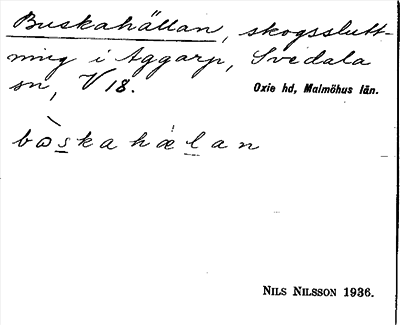 Buskahällan, skogsslutt-
ning i Aggarp, Svedala
sn, V 18. Oxie hd, Malmöhus län.
bòskahælan
NILS NILSSON 1936.